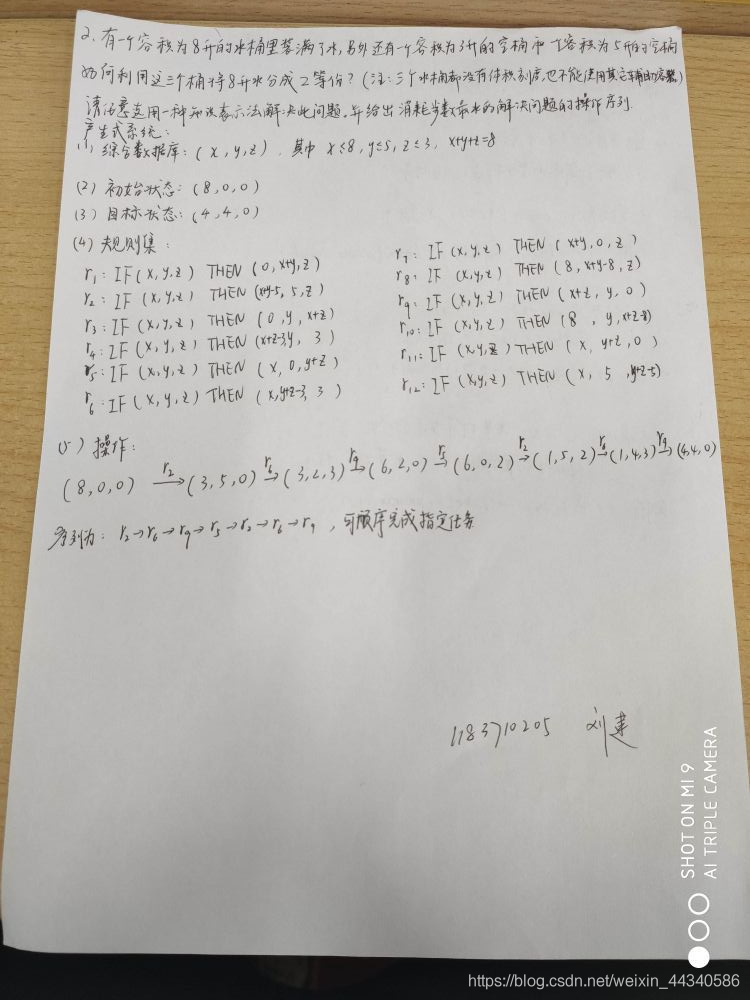 2. 有一个容积为8升的水桶里装满了水,另外还有一个容积为3升的空桶和一个容积为5升的空桶
如何利用这三个桶将8升水分成2等份?(注:三个水桶都没有体积刻度,也不能使用其它辅助容器)
请任意选用一种知识表示法解决此问题,并给出消耗步数最少的解决问题的操作序列.
产生式系统:
(1) 综合数据库:(x,y,z),其中 x≤8, y≤5, z≤3, x+y+z=8
(2) 初始状态:(8,0,0)
(3) 目标状态:(4,4,0)
(4) 规则集:
r1: IF (x,y,z) THEN (0,x+y,z)
r2: IF (x,y,z) THEN (x+y-5, 5,z)
r3: IF (x,y,z) THEN (0,y,x+z)
r4: IF (x,y,z) THEN (x+z-3,y, 3)
r5: IF (x,y,z) THEN (x,0,y+z)
r6: IF (x,y,z) THEN (x,y+z-3, 3)
r7: IF (x,y,z) THEN (x+y,0,z)
r8: IF (x,y,z) THEN (8,x+y-8,z)
r9: IF (x,y,z) THEN (x+z, y, 0)
r10: IF (x,y,z) THEN (8, y,x+z-8)
r11: IF (x,y,z) THEN (x, y+z,0)
r12: IF (x,y,z) THEN (x, 5,y+z-5)
(5) 操作:
(8,0,0) r2→ (3,5,0) r6→ (3,2,3) r9→ (6,2,0) r5→ (6,0,2) r2→ (1,5,2) r6→ (1,4,3) r9→ (4,4,0)
序列为: r2→r6→r9→r5→r2→r6→r9,可顺序完成指定任务
1183710205 刘建
SHOT ON MI 9
AI TRIPLE CAMERA
https://blog.csdn.net/weixin_44340586